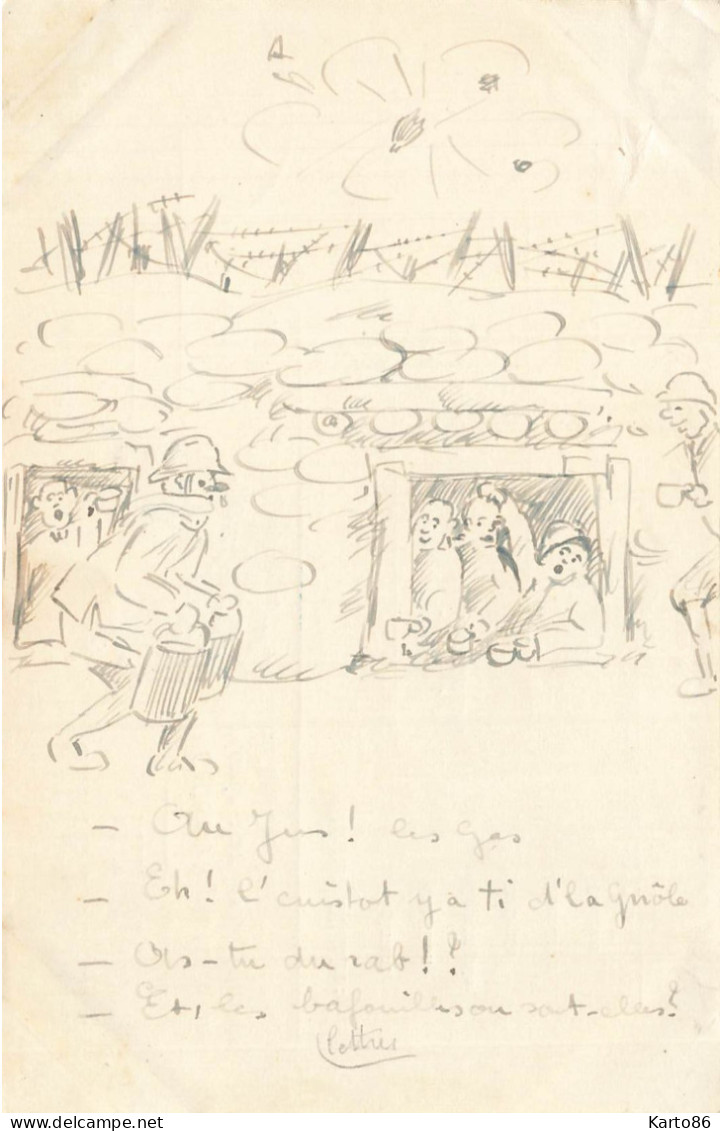 — Au Jus! les gas
— Eh! l'cuistot y a ti d'la gnôle
— As-tu du rab!?
— Et, les bafouilles ou sont-elles?
(lettres
Karto86